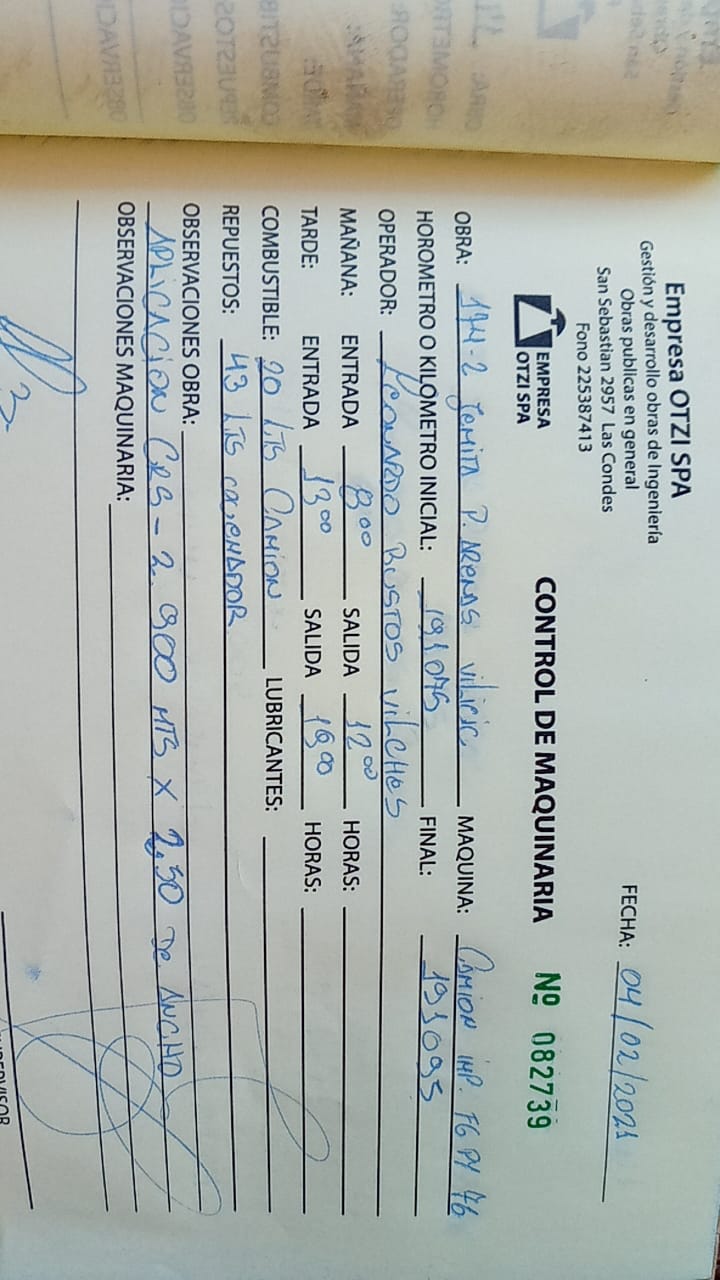 Empresa OTZI SPA
Gestión y desarrollo obras de Ingeniería
Obras publicas en general
San Sebastian 2957 Las Condes
Fono 225387413
FECHA: 04/02/2021
EMPRESA
OTZI SPA
CONTROL DE MAQUINARIA Nº 082739
OBRA: 174-2 P. ARENAS MAQUINA: CAMION IMP. FG PY 76
HOROMETRO O KILOMETRO INICIAL: 191075 FINAL: 191095
OPERADOR: LEONARDO BUSTOS VILCHES
MAÑANA: ENTRADA 8:00 SALIDA 12:00 HORAS:
TARDE: ENTRADA 13:00 SALIDA HORAS:
COMBUSTIBLE: LTS CAMION LUBRICANTES:
REPUESTOS: 43 LTS
OBSERVACIONES OBRA:
APLICACION CRS-2 900 MTS X 2,50 DE ANCHO
OBSERVACIONES MAQUINARIA: